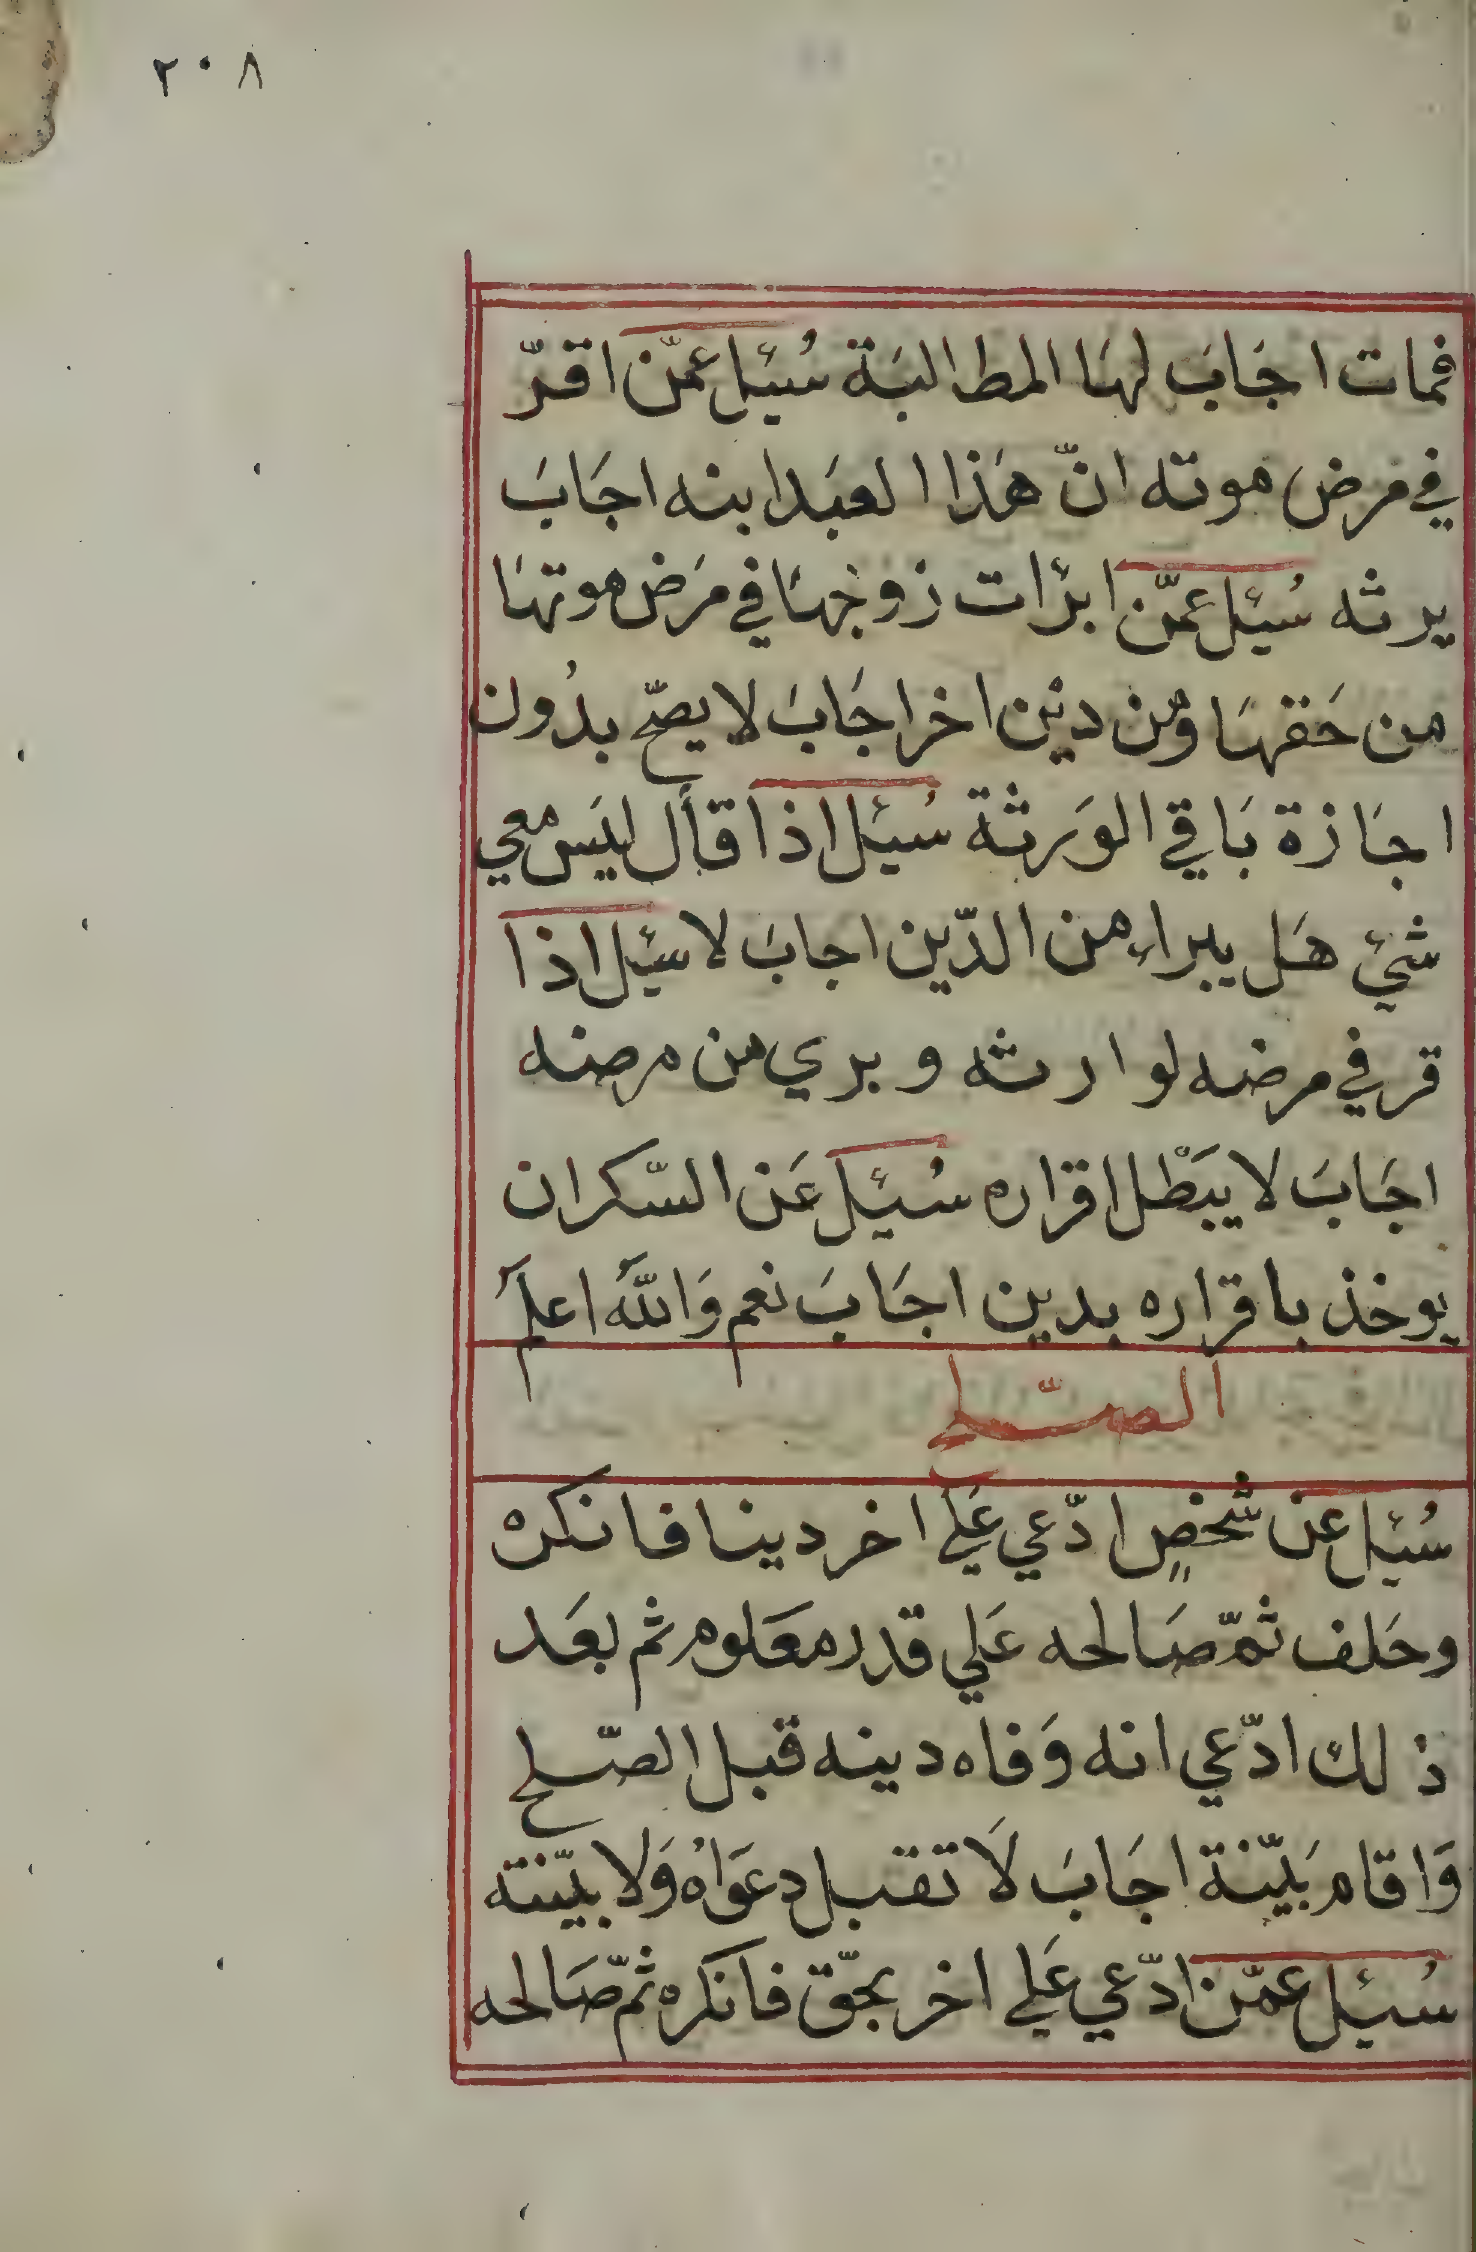 ٢٠٨
فمات اجَابَ لهَا المطالبَة سُئيل عمّن اقرّ
في مرض موته انّ هَذا العبَد ابنه اجَابَ
يرثه سُئيل عمّن ابرَات زوجهَا في مَرَض موتهَا
من حَقهَا ومن دين اخر اجَابَ لا يصحّ بدُون
اجَازة بَاقي الوَرثة سُئيل اذا قال ليَس معي
شيئ هَل يبراء من الدّين اجابَ لا سئيل اذا
قر في مرضه لوارثه وبري من مرضه
اجَابَ لا يبَطْل اقراره سُئيل عَن السّكران
يوخذ باقراره بدين اجَابَ نعم وَاللّه اعلمَ
الصّلح
سُئيل عن شخصٍ ادّعي عَلي اخر دينا فانكره
وحَلف ثمّ صَالحه عَلي قدر معَلوم ثم بعَد
ذلك ادّعي انه وَفاه دينه قبل الصّلح
وَاقام بَيّنة اجَابَ لَا تقبل دعوَاه وَلا بيّنته
سُئيل عمّن ادّعي عَلي اخر بحقّ فانكره ثمّ صَالحه